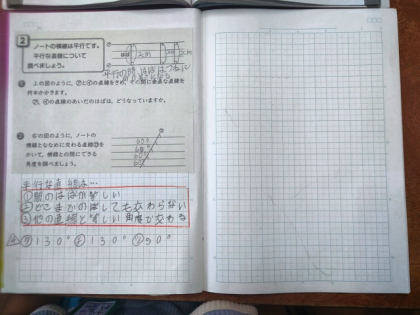 2
ノートの横線は平行です。
平行な直線について
調べましょう。
平行の間
① 上の図のように、㋐と㋑の直線をきめ、その間に垂直な直線を
何本かかきます。
㋐、㋑の直線のあいだのはばは、どうなっていますか。
② 右の図のように、ノートの
横線とななめに交わる直線㋒を
かいて、横線との間にできる
角度を調べましょう。
60°
60°
60°
平行な直線は…
①間のはばが等しい
②どこまでのばしても交わらない
③他の直線と等しい角度で交わる
130° 130° 50°